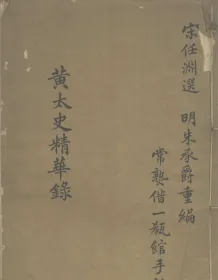 宋任淵選　明朱承爵重編
常熟借一瓻館手
黃太史精華錄